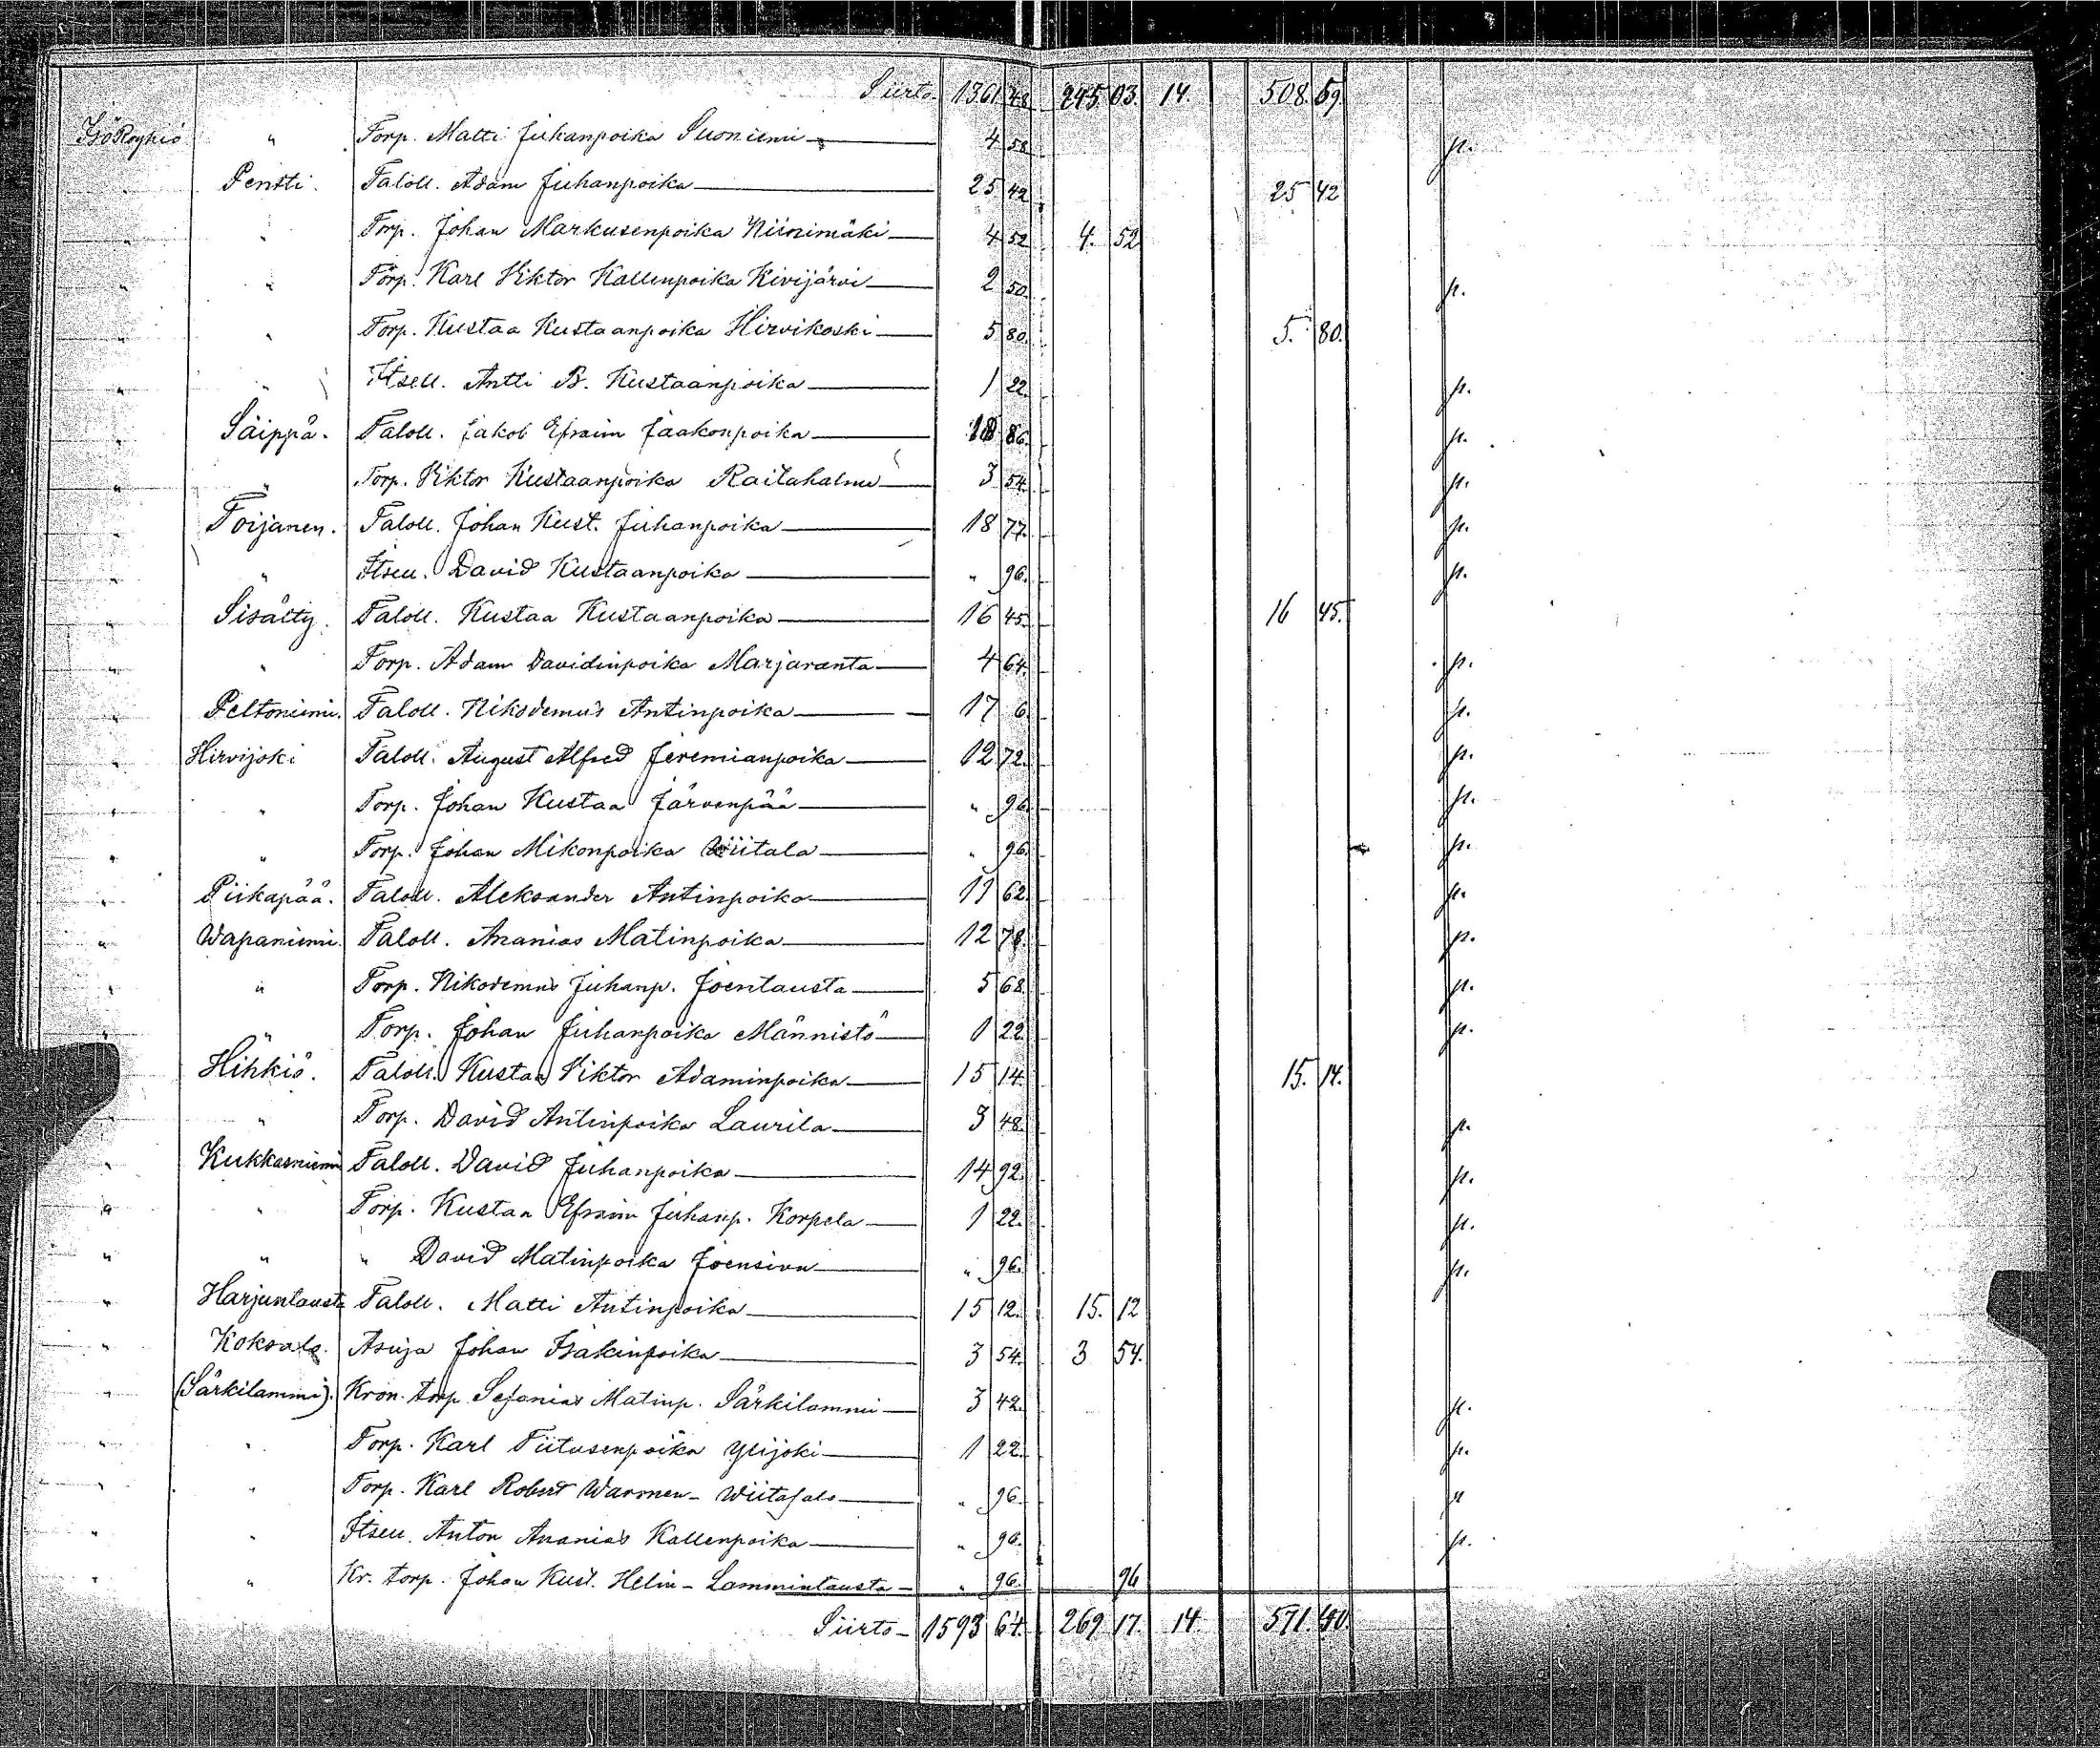 Siirto 1361 48 245 03. 14. 508. 59.
Isö Röyhiö " Torp. Matti Juhanpoika Suoniemi 4 58 p.
" Pentti. Taloll. Adam Juhanpoika 25 42 25 42
" " Torp. Johan Markusenpoika Niinimäki 4 52 4. 52
" " Torp. Karl Viktor Kallenpoika Kivijärvi 2 50 p.
" " Torp. Kustaa Kustaanpoika Hirvikoski 5 80. 5. 80.
" " Itsell. Antti B. Kustaanpoika 1 22 p.
" Säippä. Taloll. Jakob Efraim Jaakonpoika 18 86. p.
" " Torp. Viktor Kustaanpoika Raitahalme 3 54. p.
" Toijanen. Taloll. Johan Kust. Juhanpoika 18 77. p.
" " Itsell. David Kustaanpoika " 96. p.
" Sisätty. Taloll. Kustaa Kustaanpoika 16 45. 16 45.
" " Torp. Adam Davidinpoika Marjaranta 4 64. p.
" Peltoniemi. Taloll. Nikodemus Antinpoika 17 6. p.
" Hirvijoki Taloll. August Alfred Jeremianpoika 12 72. p.
" " Torp. Johan Kustaa Järvenpää " 96. p.
" " Torp. Johan Mikonpoika Wiitala " 96. p.
" Piikapää. Taloll. Aleksander Antinpoika 11 62. p.
" Wapaniemi. Taloll. Ananias Matinpoika 12 78. p.
" " Torp. Nikodemus Juhanp. Joentausta 5 68. p.
" " Torp. Johan Juhanpoika Männistö 1 22. p.
" Hihkiö. Taloll. Kustaa Viktor Adaminpoika 15 14. 15. 14.
" " Torp. David Antinpoika Laurila 3 48. p.
" Kukkasniemi Taloll. David Juhanpoika 14 92. p.
" " Torp. Kustaa Efraim Juhanp. Korpela 1 22. p.
" " " David Matinpoika Joensivu " 96. p.
" Harjuntausta Taloll. Matti Antinpoika 15 12. 15. 12
" Koksala. Asuja Johan Isakinpoika 3 54. 3 54.
" (Särkilammi). Kron. torp. Sefanias Matinp. Särkilammi 3 42. p.
" " Torp. Karl Tiitusenpoika Ylijoki 1 22. p.
" " Torp. Karl Robert Warvonen - Wiitasalo " 96. p
" " Itsell. Anton Ananias Kallenpoika " 96. p.
" " Kr. torp. Johan Kust. Helin - Lammintausta " 96. 96
Siirto 1593 64. 269 17. 14. 571. 40.